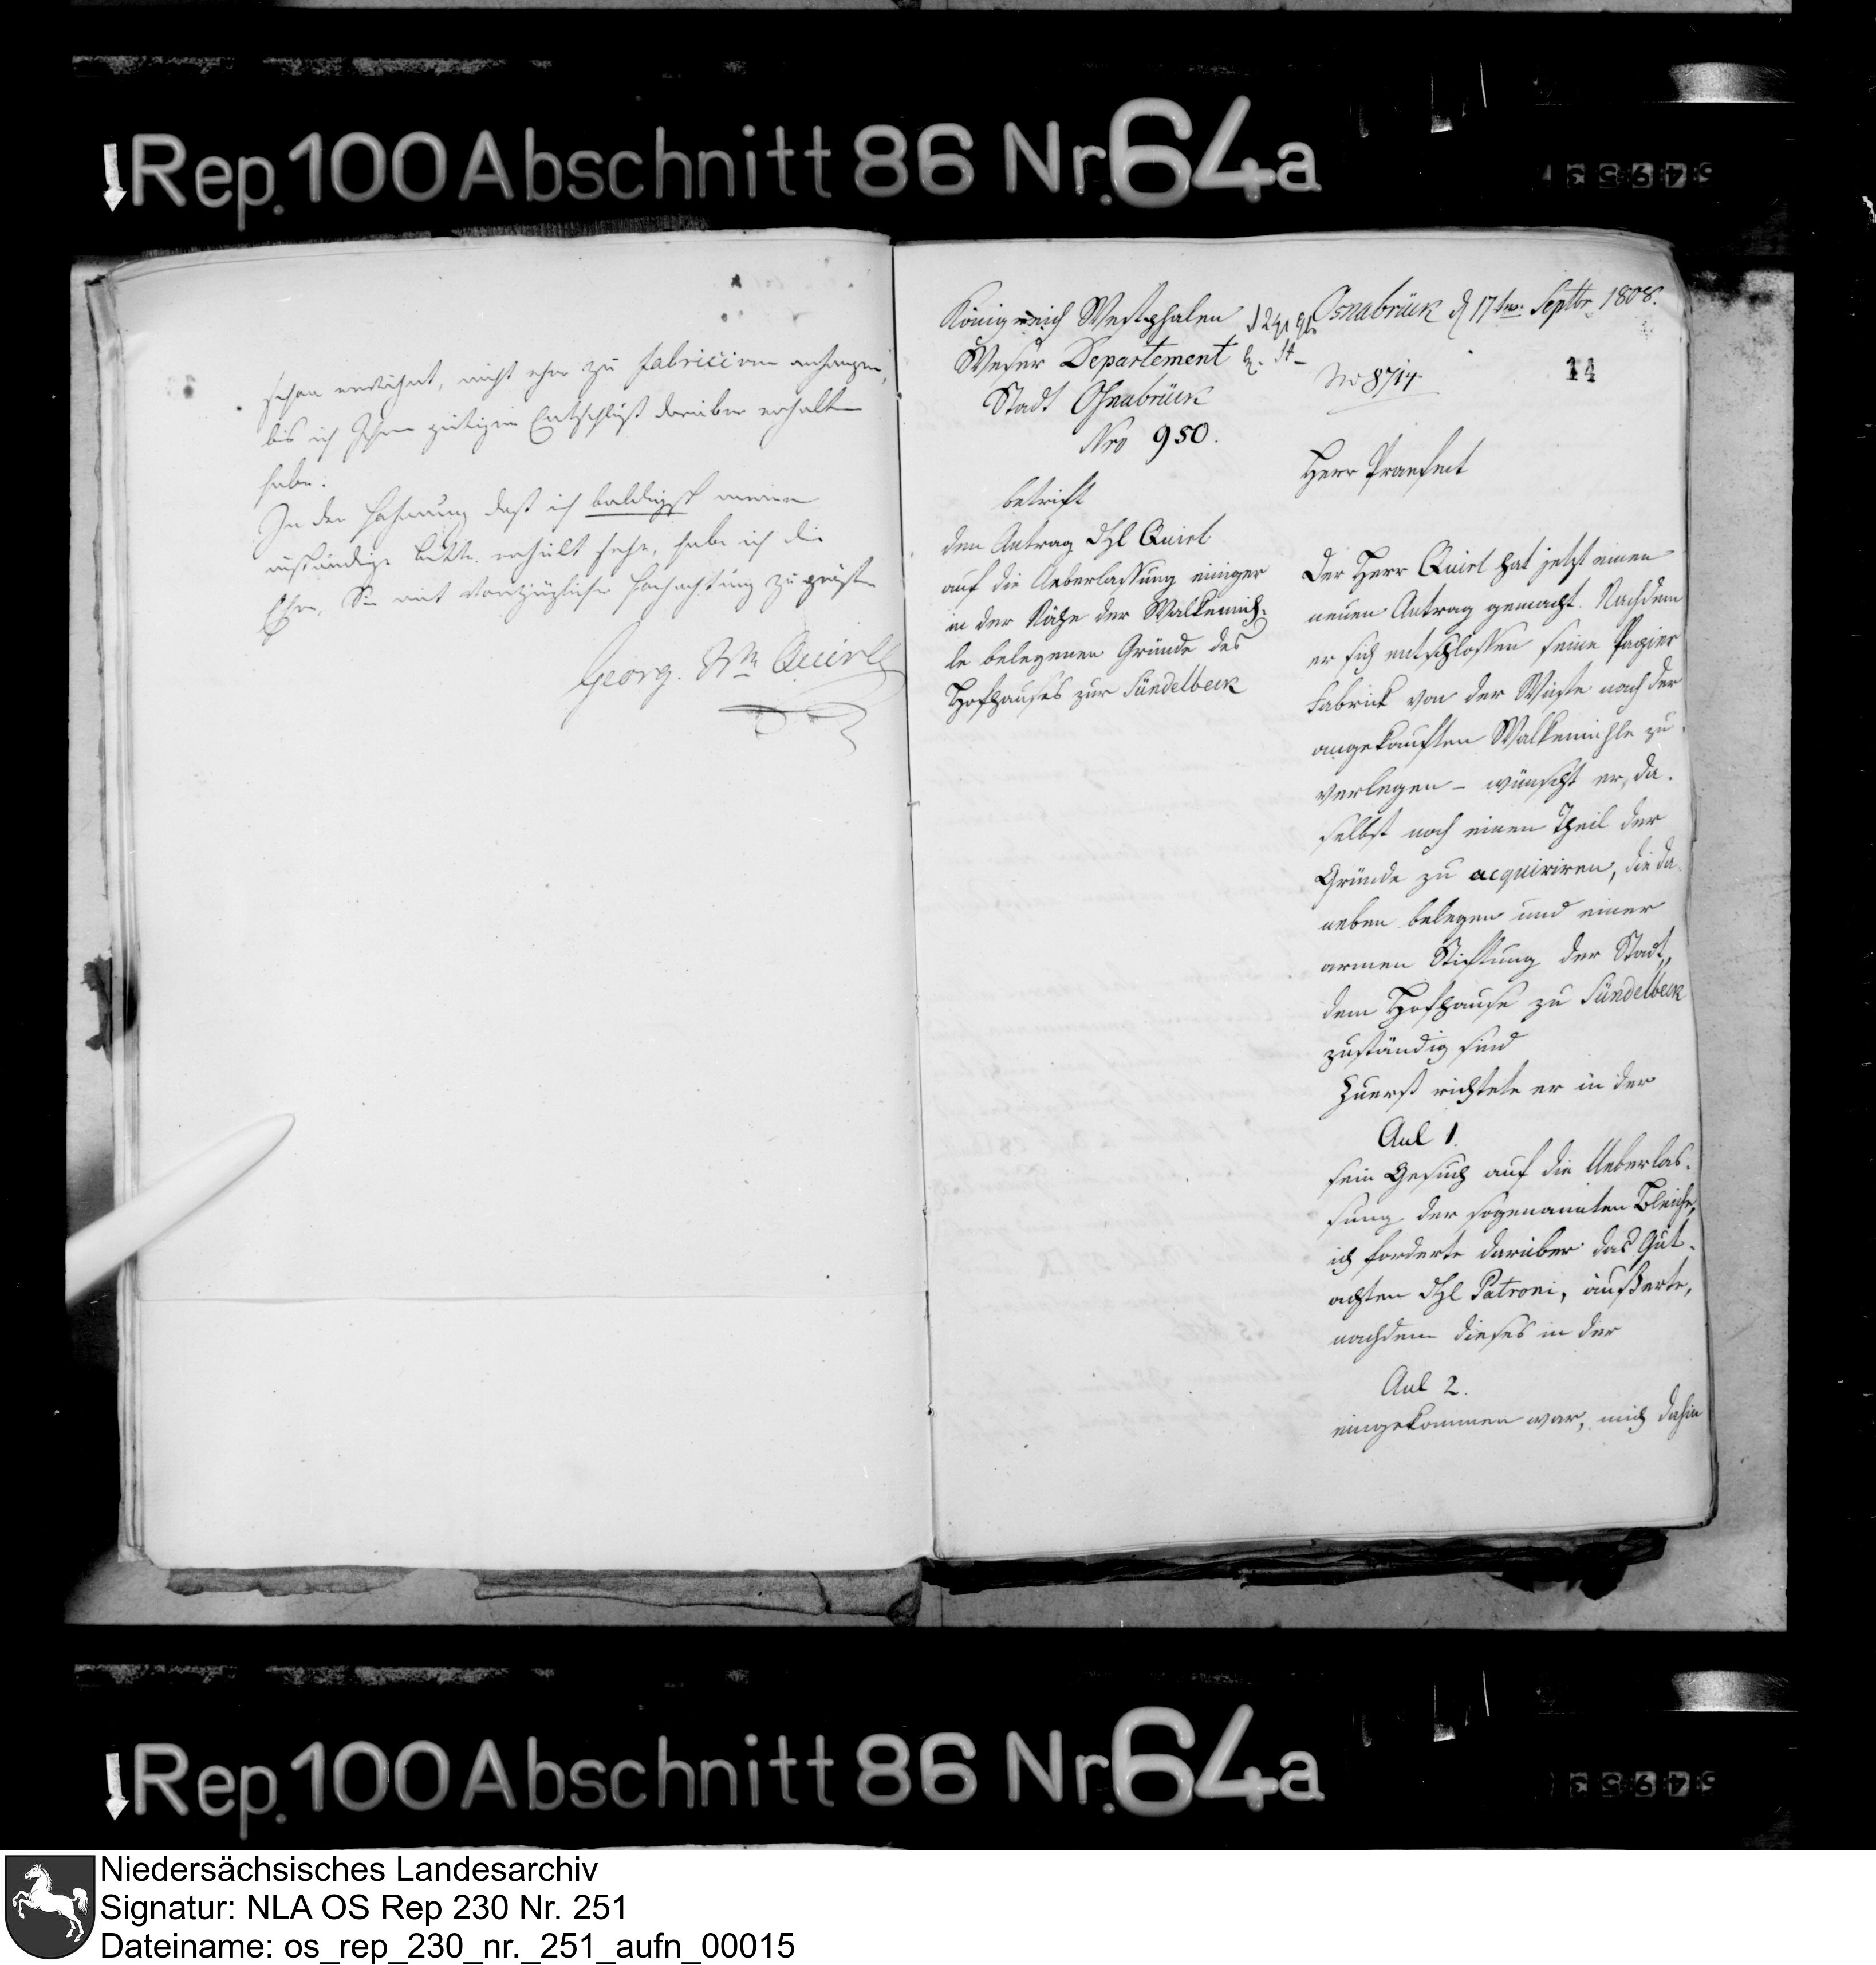 Rep. 100 Abschnitt 86 Nr. 64a
schon erwähnt, nicht eher zu fabriciren anfangen,
bis ich Ihren gütigen Entschluß darüber erhalten
habe.
In der Hofnung daß ich baldigst meine
inständige Bitte erfüllt sehe, habe ich die
Ehre, Sie mit vorzüglicher Hochachtung zu grüßen
Georg. Wm Quirll
Königreich Westphalen
Weser Departement
Stadt Osnabrück
Nro 950.
betrift
den Antrag Quirl
auf die Ueberlassung einiger
in der Nähe der Walkemüh-
le belegenen Gründe des
Hofhauses zur Sündelbeck
Osnabrück d 17ten Septbr. 1808.
No 8714
14
Herr Praefect
Der Herr Quirl hat jetzt einen
neuen Antrag gemacht. Nachdem
er sich entschlossen seine Papier
Fabrick von der Wüste nach der
angekauften Walkemühle zu
verlegen – wünscht er, da-
selbst noch einen Theil der
Gründe zu acquiriren, die da-
neben belegen und einer
armen Stiftung der Stadt,
dem Hofhause zu Sündelbeck
zuständig sind
Zuerst richtete er in der
Anl 1.
sein Gesuch auf die Ueberlas-
sung der sogenannten Bleiche,
ich forderte darüber das Gut-
achten Patroni, äußerte,
nachdem dieses in der
Anl 2.
eingekommen war, mich dahin
Rep. 100 Abschnitt 86 Nr. 64a
Niedersächsisches Landesarchiv
Signatur: NLA OS Rep 230 Nr. 251
Dateiname: os_rep_230_nr._251_aufn_00015